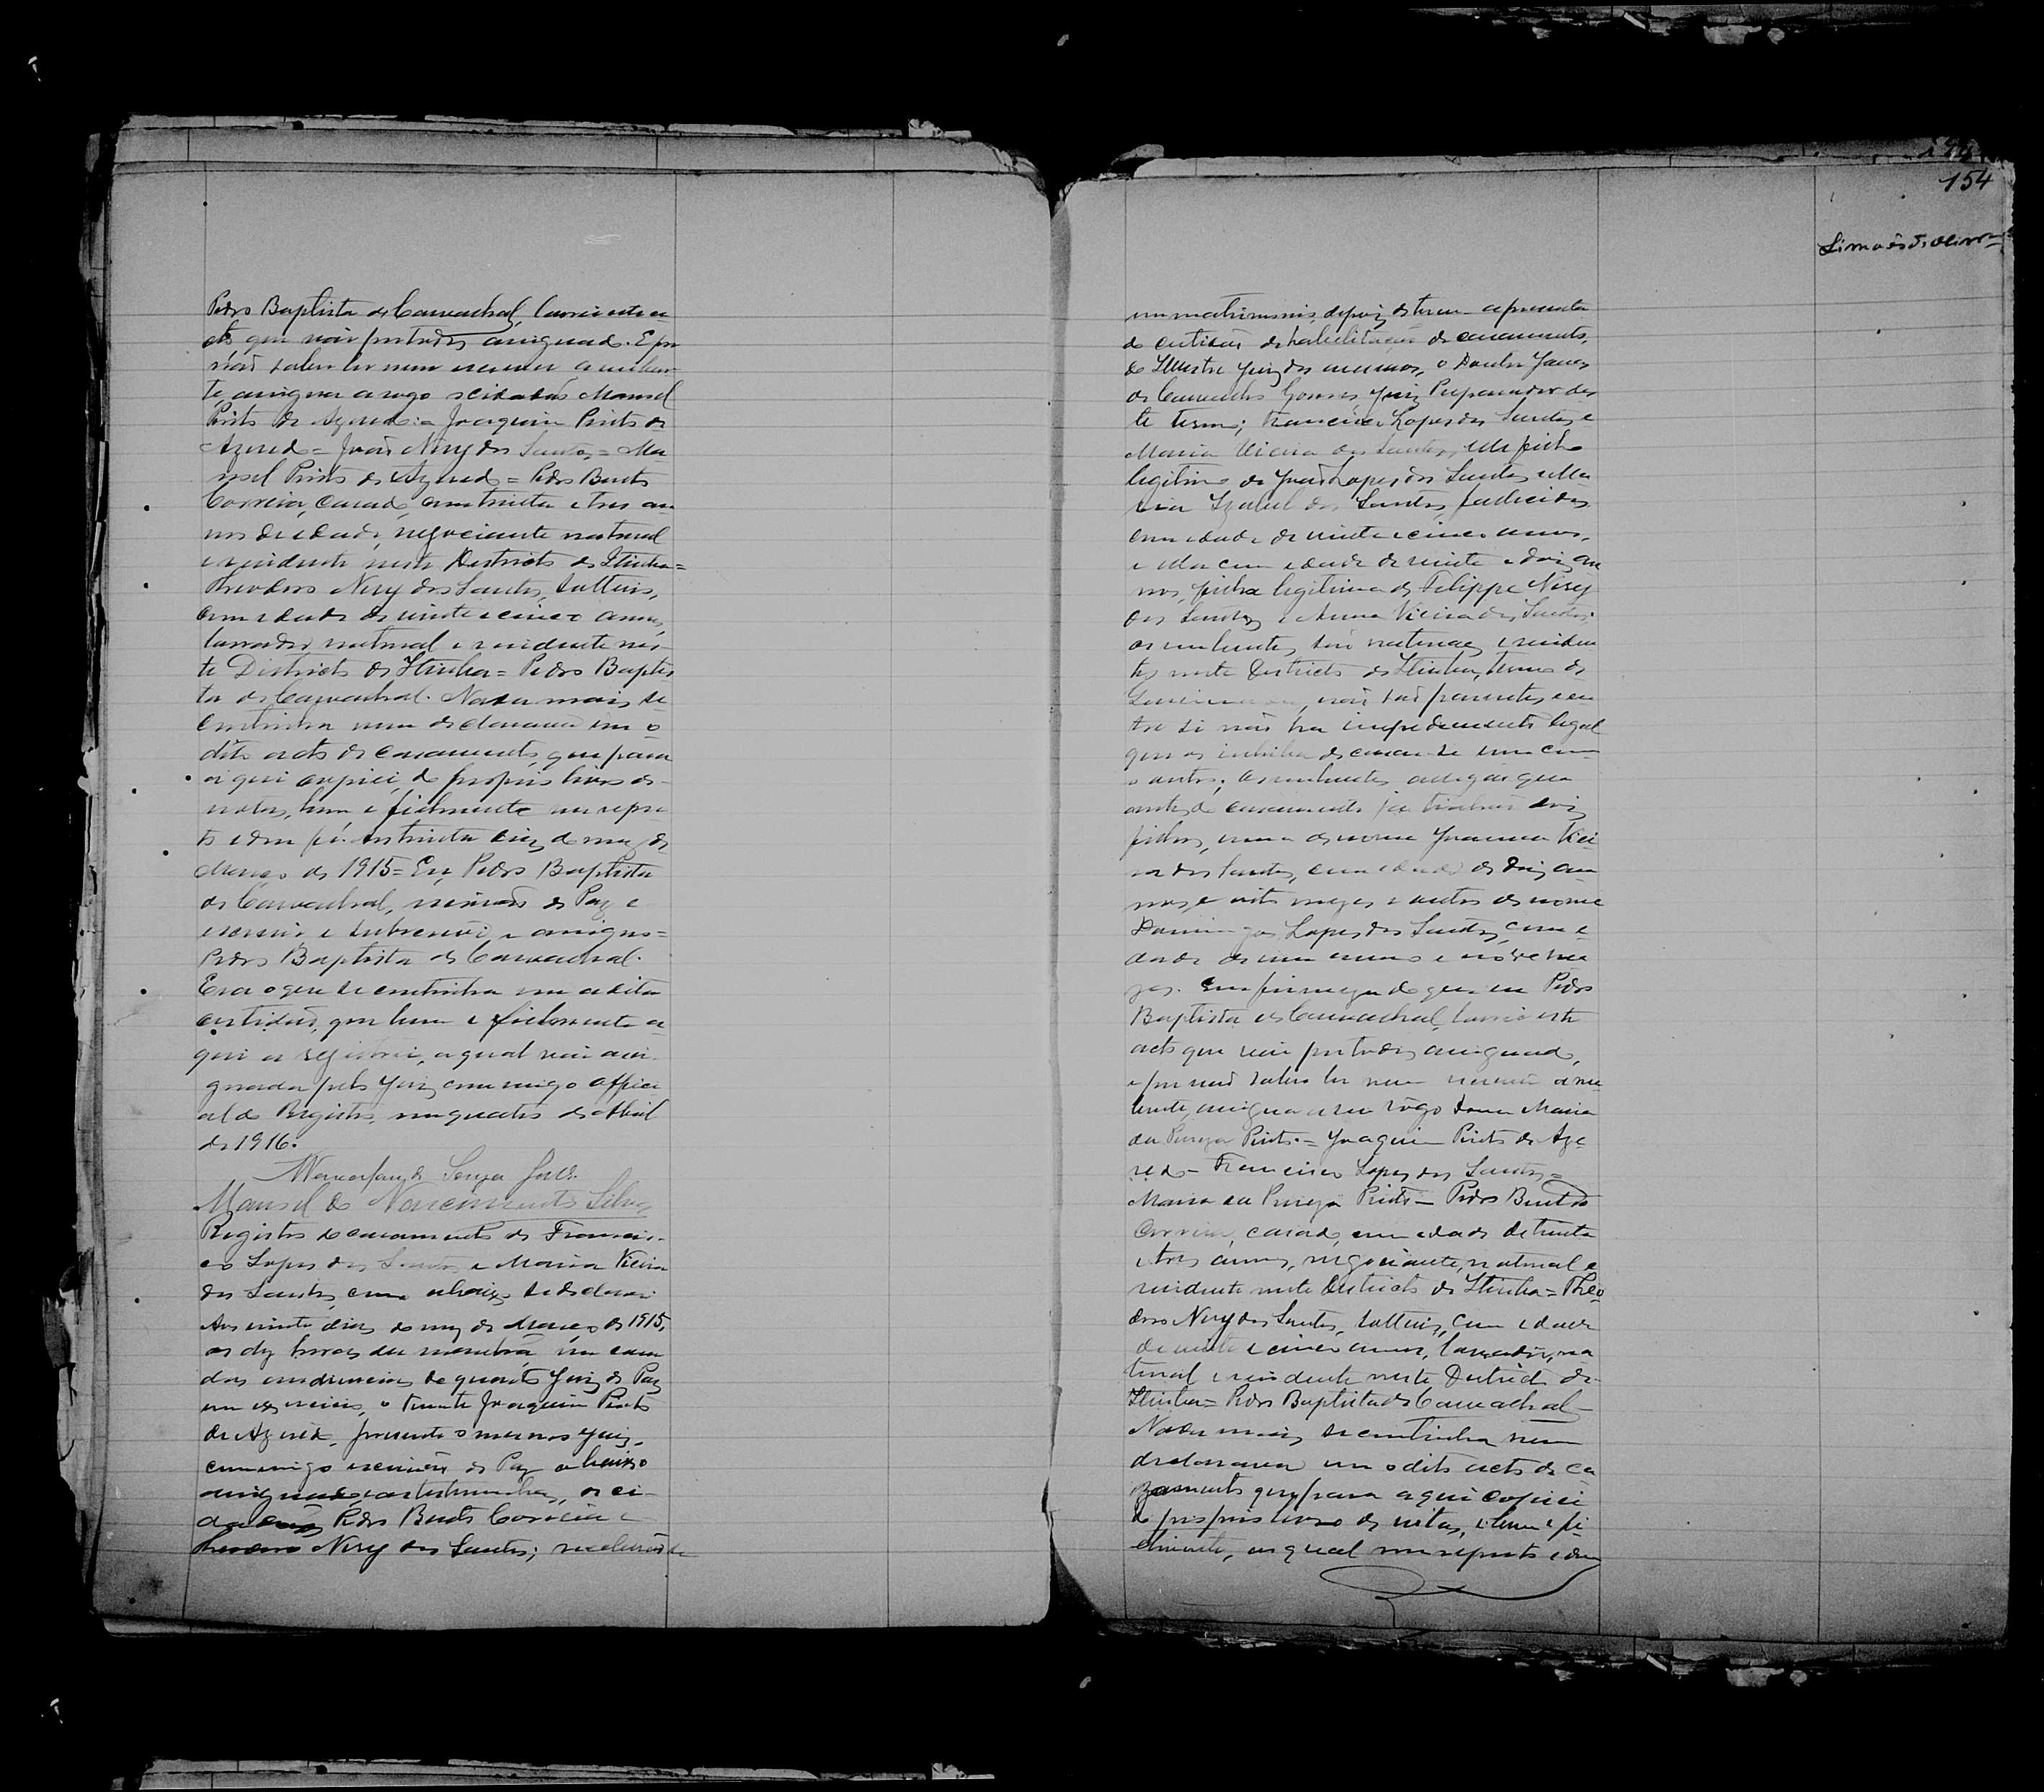 Pedro Baptista de Carvachal, lavrei este a
cto que vai por todos assignado. E por
não saber ler nem escrever a nuben
te, assigna a rogo o cidadão Manoel
Pinto de Azeredo = Joaquim Pinto de
Azeredo = João Nery dos Santos = Ma
noel Pinto de Azeredo = Pedro Bento
Correia, casado, com trinta e tres an
nos de edade, negociante natural
e residente neste Districto de Itiuba =
Theodoro Nery dos Santos, solteiro,
com edade de vinte e cinco annos,
lavrador, natural e residente nes
te Districto de Itiuba = Pedro Baptis
ta de Carvachal. Nada mais se
continha nem declarava em o
dito acto de casamento, que para
aqui copiei, do proprio livro de
notas, bem e fielmente me repor
to e dou fé. aos trinta dias do mez de
Março de 1915 = Eu, Pedro Baptista
de Carvachal, escrivão de Paz o
escrevi e subscrevi e assigno =
Pedro Baptista de Carvachal.
Era o que se continha em a dita
certidão, que bem e fielmente a
qui a registrei, a qual vai assi
gnada pelo Juiz commigo offici
al do Registro, em quatro de Abril
de 1916.
Souza
Manoel do Nascimento Silva
Registro do casamento de Francis
co Lopes dos Santos e Maria Vieira
dos Santos, como abaixo se declara
Aos vinte dias do mez de Março de 1915,
as dez horas da manhã, em casa
das audiencias do quarto Juiz de Paz
em exercicio, o Tenente Joaquim Pinto
de Azeredo, presente o mesmo Juiz,
commigo escrivão de Paz abaixo
assignado, e as testemunhas, os ci
dadãos Pedro Bento Correia e
Theodoro Nery dos Santos; receberão se
154
Simões d'Oliveira
em matrimonio, depois de terem apresenta
do certidão de habilitação de casamento,
do Illustre Juiz dos mesmos, o Doutor
de Carvalho Gomes Juiz Preparador des
te termo; Francisco Lopes dos Santos e
Maria Vieira dos Santos, elle filho
legitimo de João Lopes dos Santos e Ma
ria Izabel dos Santos, fallecidos
com edade de vinte e cinco annos,
e ella com edade de vinte e dois an
nos, filha legitima de Felippe Nery
dos Santos e Anna Vieira dos Santos;
os nubentes são naturaes e residen
tes neste Districto de Itiuba, termo de
não são parentes e en
tre si não ha impedimento legal
que os inhiba de casar-se um com
o outro; os nubentes que
antes do casamento já tinhão dois
filhos, uma de nome Joanna Viei
ra dos Santos, com edade de dois an
nos e oito mezes e outro de nome
Domingos Lopes dos Santos, com e
dade de um anno e nove me
zes. Em firmeza do que eu Pedro
Baptista de Carvachal, lavrei este
acto que vai por todos assignado,
e por não saber ler nem escrever a nu
bente, assigna a seu rôgo Dona Maria
da Pureza Pinto. = Joaquim Pinto de Aze
redo - Francisco Lopes dos Santos =
Maria da Pureza Pinto - Pedro Bento
Correia, casado, com edade de trinta
e tres annos, negociante, natural e
residente neste Districto de Itiuba = Theo
doro Nery dos Santos, solteiro, com edade
de vinte e cinco annos, lavrador, na
tural e residente neste Districto de
Itiuba = Pedro Baptista de Carvachal -
Nada mais se continha nem
declarava em o dito acto de ca
zamento que para aqui copiei
do proprio livro de notas, e bem e fi
elmente, ao qual me reporto e dou